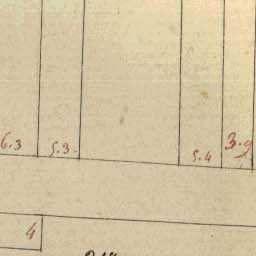 6.3 5.3 5.4 3.9
4